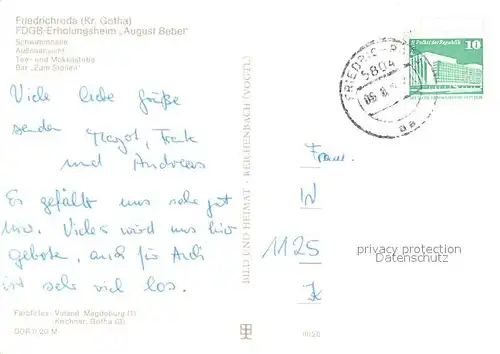 Friedrichroda (Kr. Gotha)
FDGB-Erholungsheim „August Bebel"
Schwimmhalle
Außenansicht
Tee- und Mokkastube
Bar „Zum Stollen"
Viele liebe Grüße
senden Magot, Frank
und Andreas
Es gefällt uns sehr gut
hier. Vieles wird uns hier
geboten, auch für Andi
ist sehr viel los.
Farbfotos: Voland, Magdeburg (1)
Kirchner, Gotha (3)
BILD UND HEIMAT · REICHENBACH (VOGTL)
4804
06. 8.
aa
Palast der Republik
10
Fam.
W
1125
K
privacy protection
Datenschutz